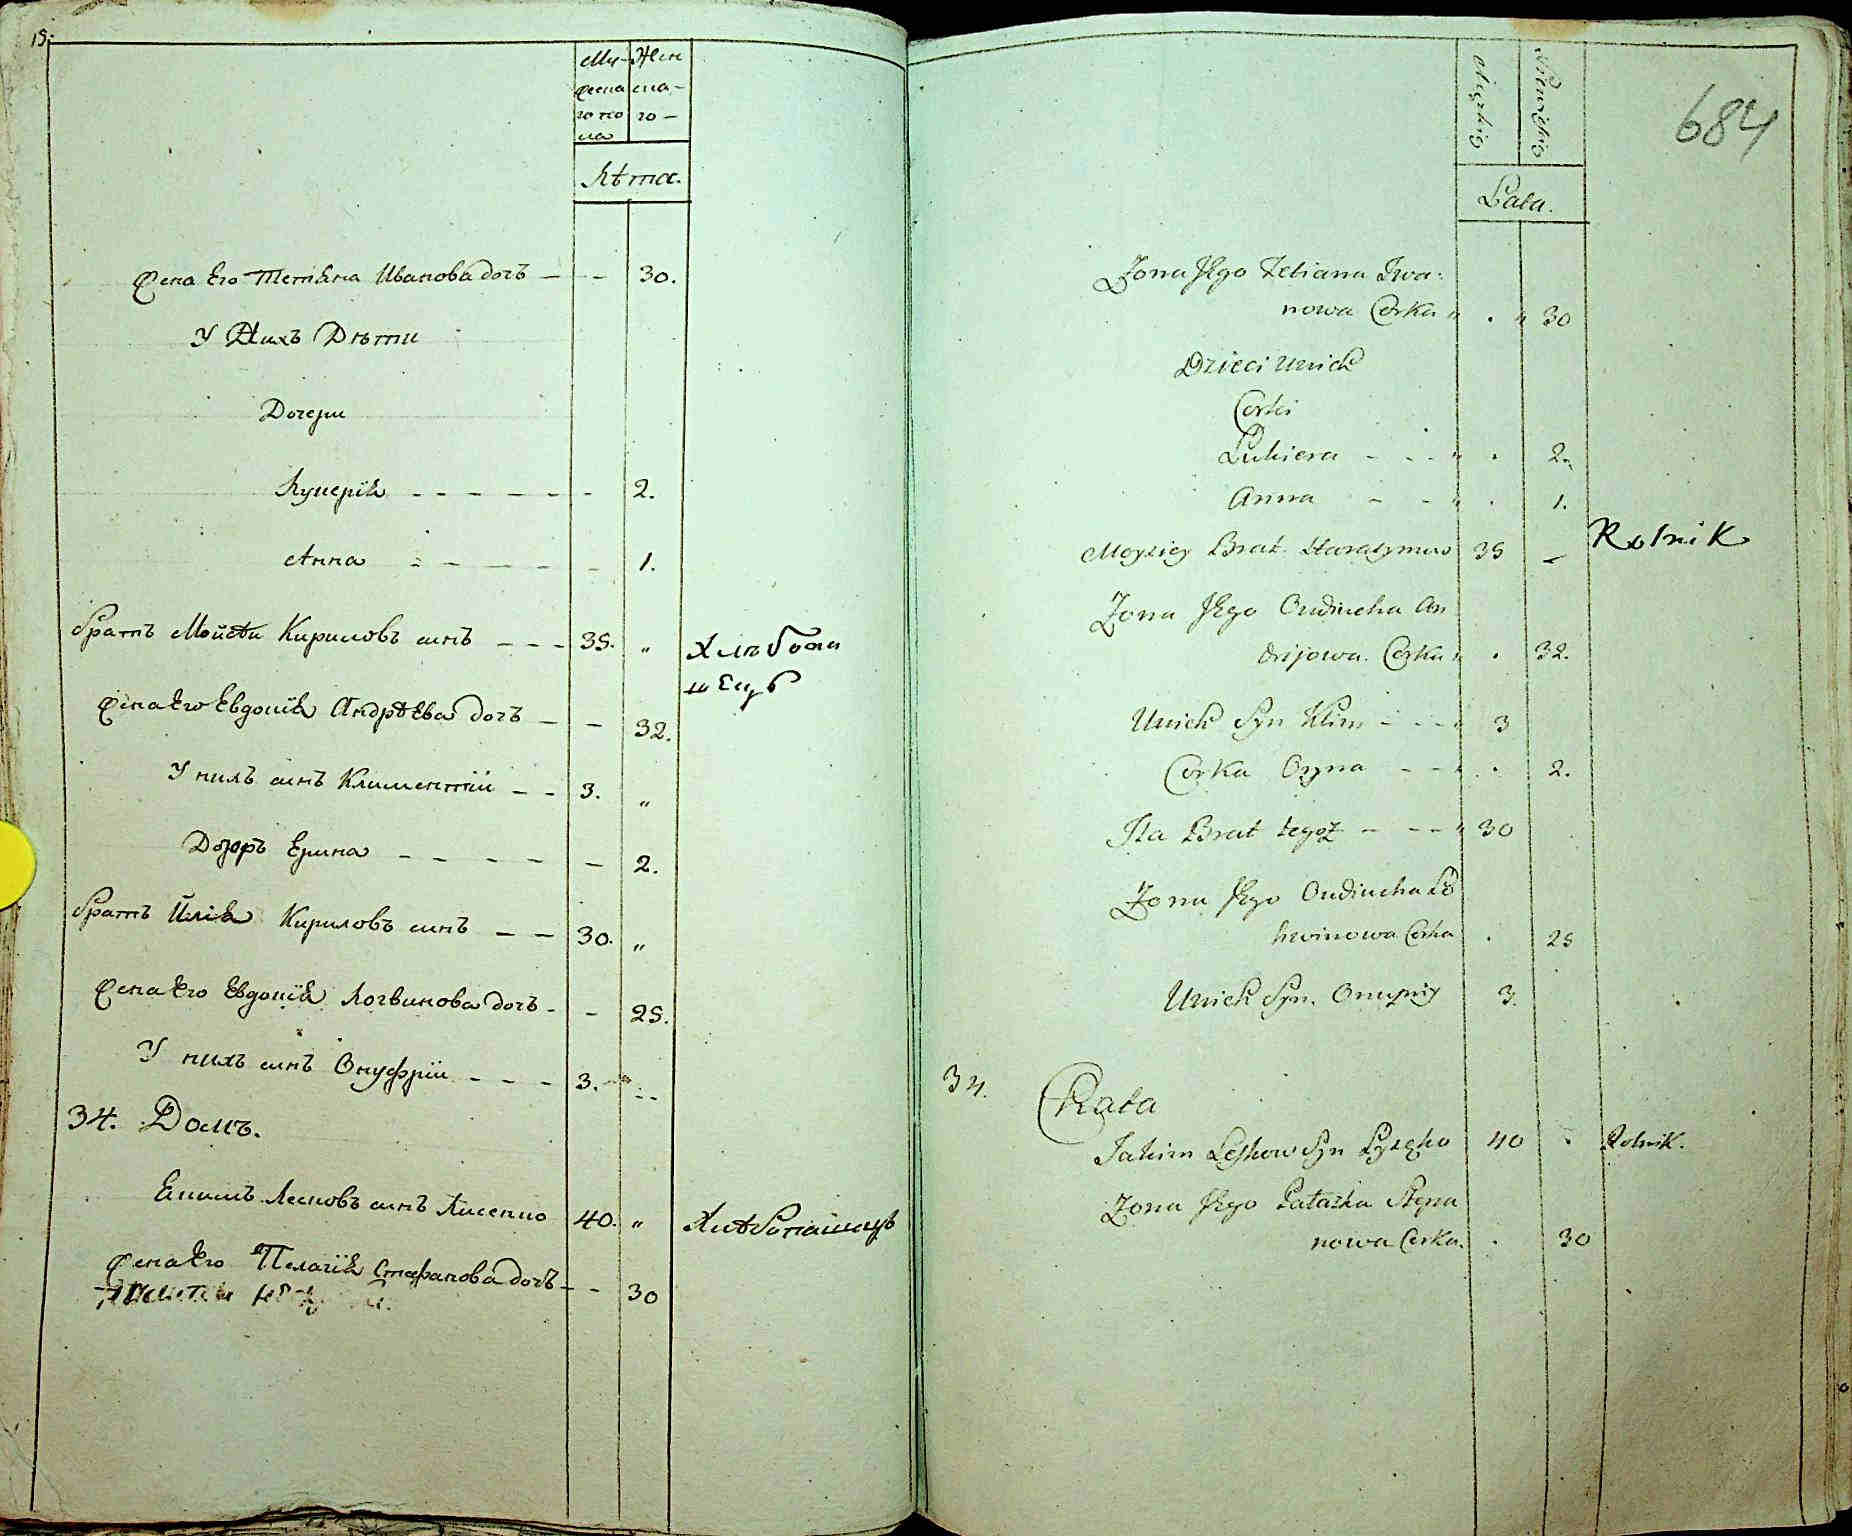 15.
Му- Жен
жеска ска-
го по го -
ла
Лѣта.
Жена Его Тетяна Иванова дочь — - 30.
У Нихъ Дѣти
Дочери
Лукерія - - - - - - - 2.
Анна - - - - - 1.
братъ Мойсѣй Кириловъ сынъ - - - 35. „ Хлѣбопа
шецъ
Жена Его Евдокія Андрѣева дочь - - 32.
У нихъ сынъ Климентій - - 3. „
Дочеръ Ерина - - - - - - 2.
братъ Илія Кириловъ сынъ - - 30. „
Жена Его Евдокія Логвинова дочь - - 25.
У нихъ сынъ Онуфрій - - - 3.
34. Домъ.
Якимъ Лесковъ сынъ Лисенко 40. „ Хлѣбопашецъ
Жена Его Пелагія Стефанова дочь - - 30
684
Męzkie Niewieskie
Lata.
Żona Jego Tetiana Iwa:
nowa Corka „ . „ 30
Dzieci Unich
Corki
Lukiera - - - „ . 2.
Anna - - „ . 1.
Moyziey Brat Harasymow 35 - Rolnik
Żona Jego Oudiucha An
drijowa Corka „ . 32.
Unich Syn Klim - - - „ 3
Corka Oryna - - „ . 2.
Ila Brat tegoż - - - „ 30
Żona Jego Oudiucha Lo
hwinowa Corka . 25
Unich Syn Onupriy 3.
34. Chata
Jakim Leskow Syn Lysęko 40 . Rolnik.
Żona Jego Pałażka Stepa
nowa Corka. . 30